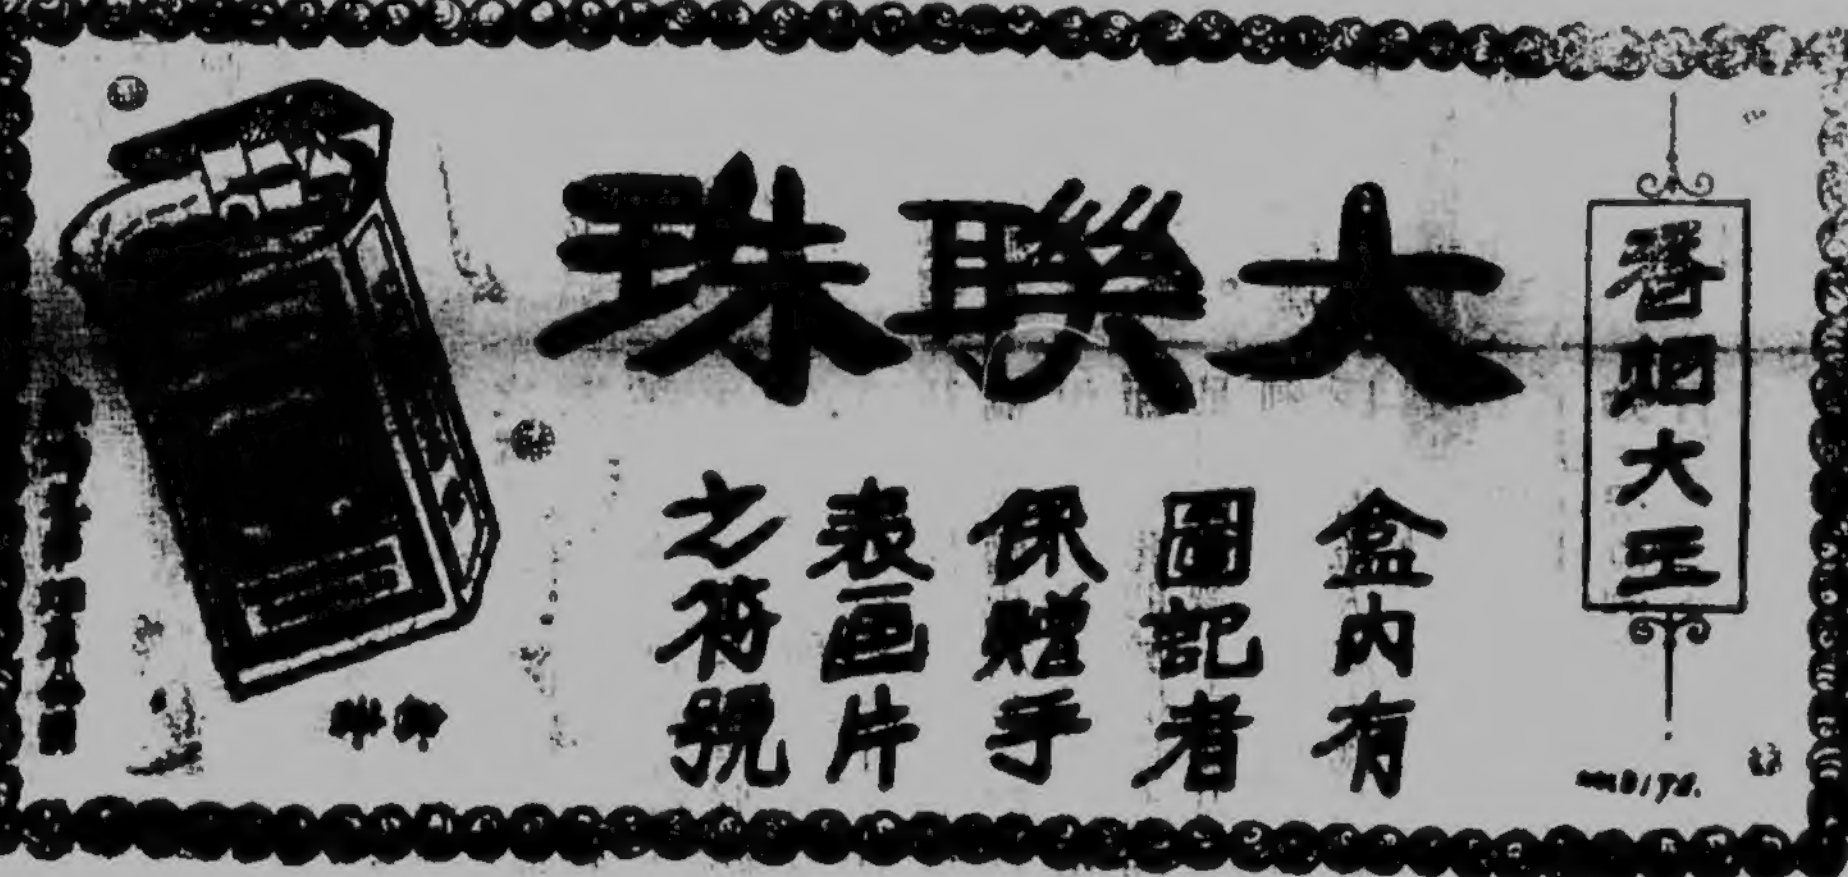 香烟大王
大聯珠
盒內有
圖記者
保贈手
表画片
之符號